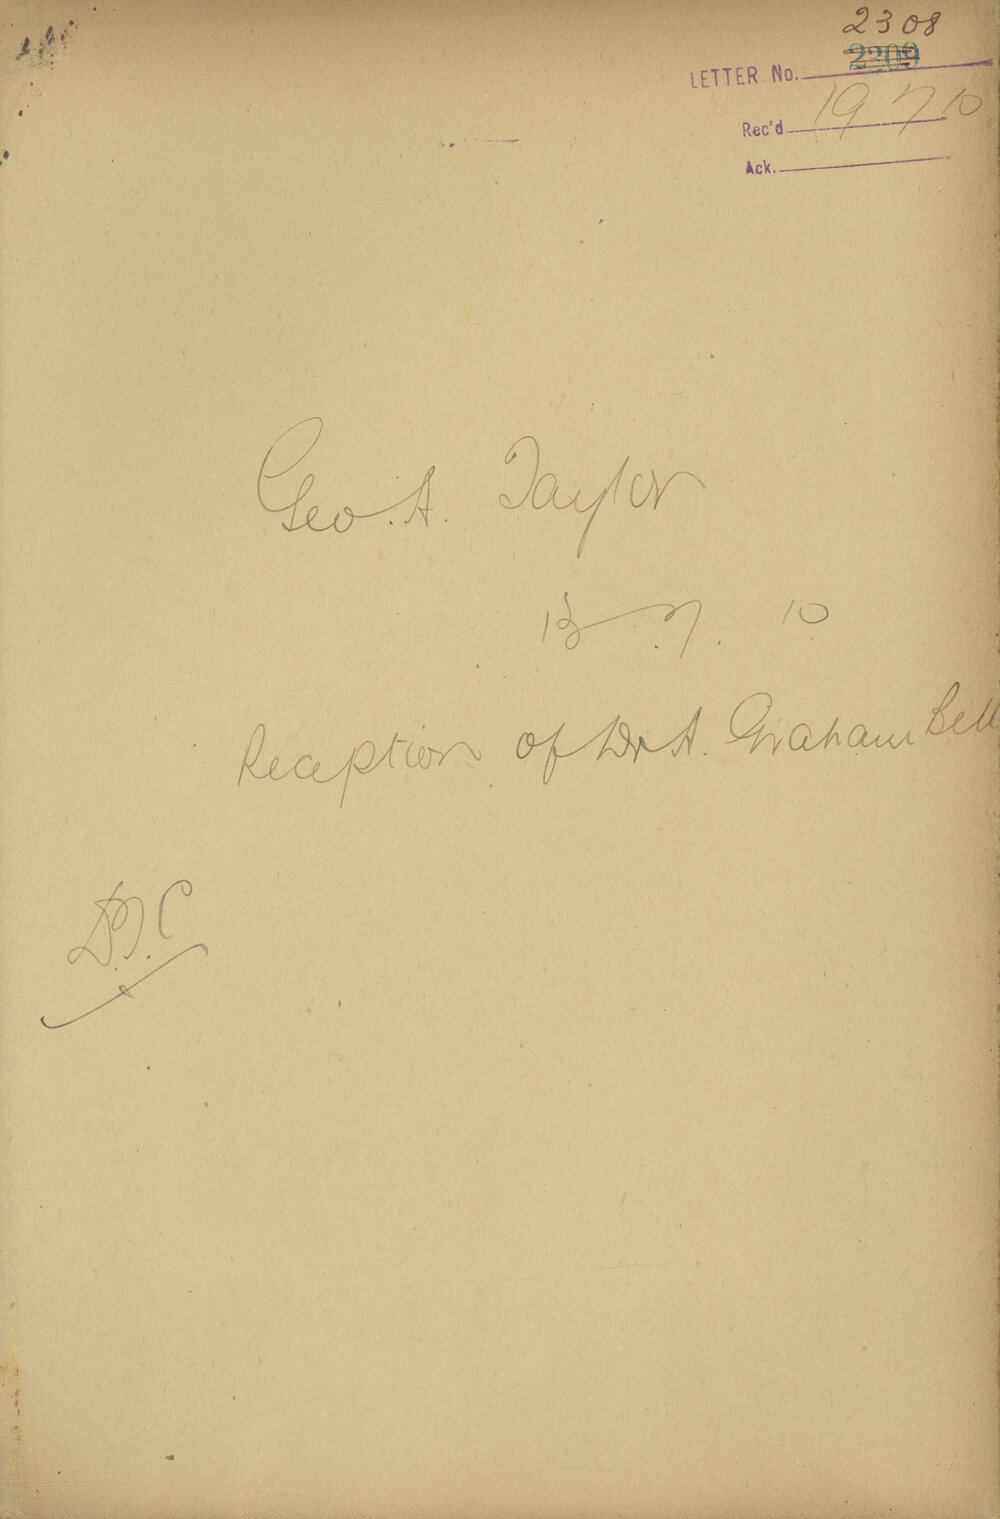 2308
LETTER No. 2209
Rec'd 19 7 10
Ack.
Geo. A. Taylor
13 . 7 . 10
Reception of Dr A. Graham Bell